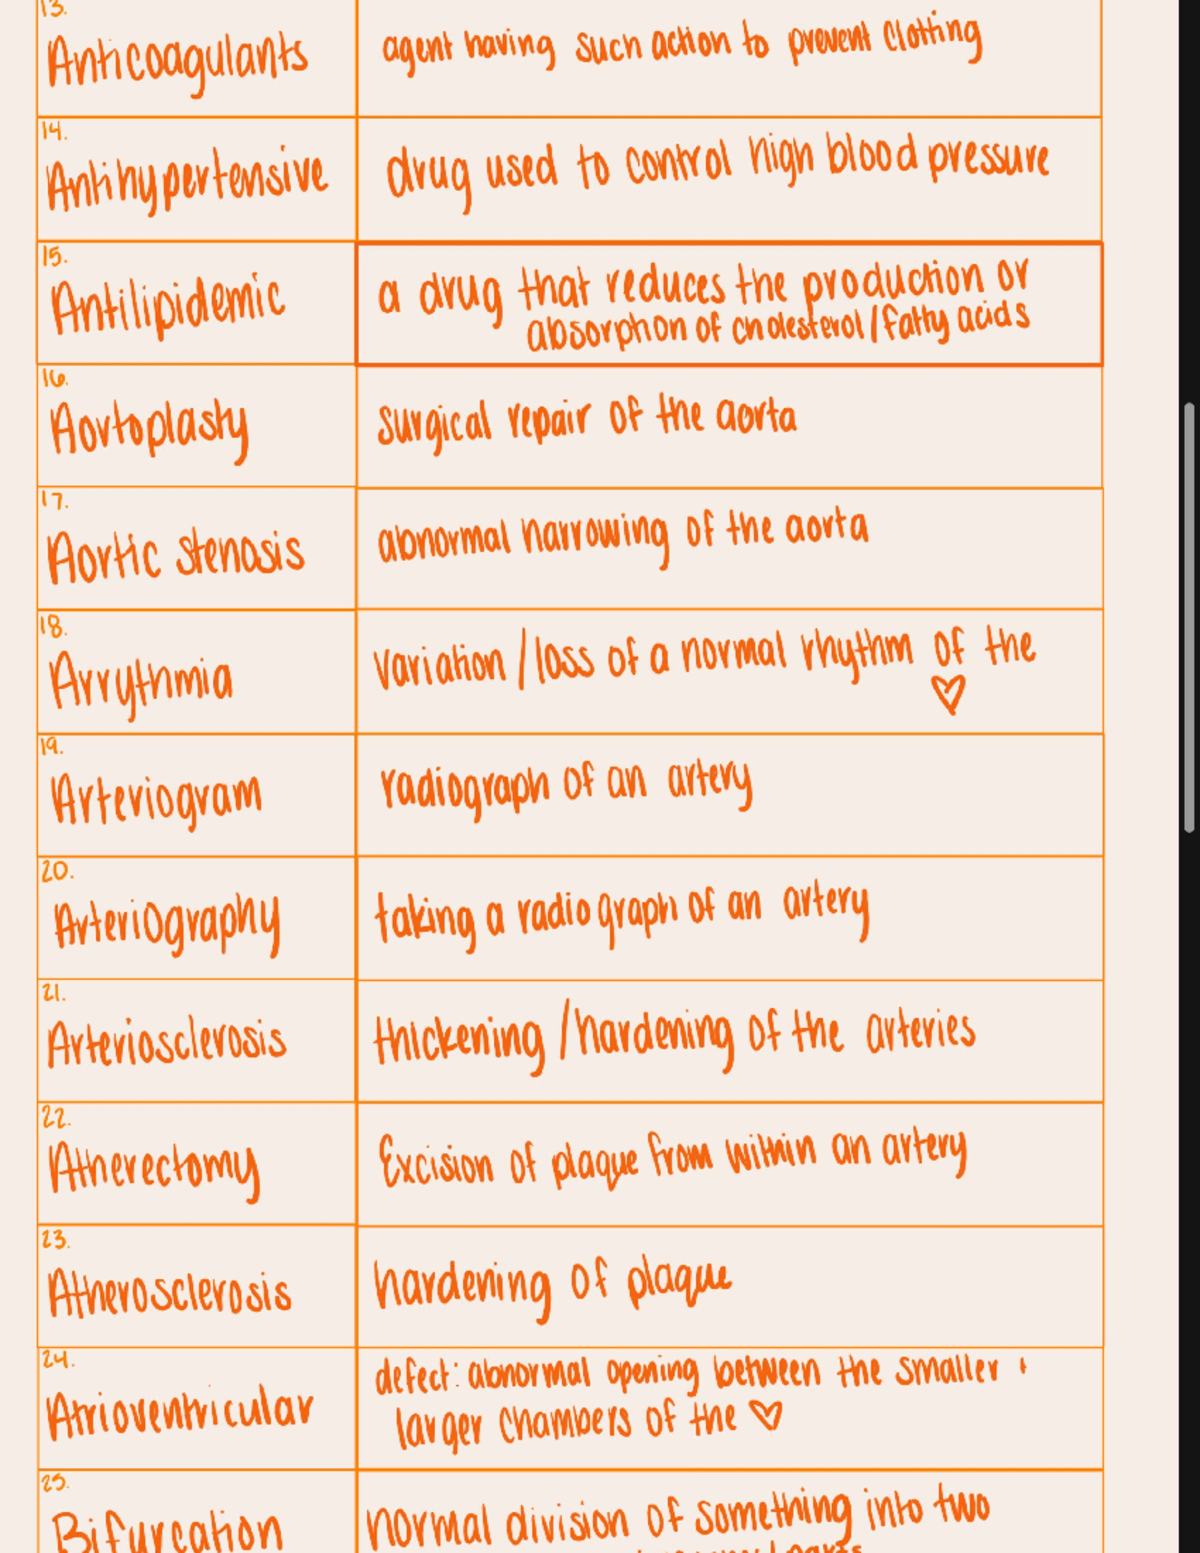 13.
Anticoagulants
agent having such action to prevent clotting
14.
Antihypertensive
drug used to control high blood pressure
15.
Antilipidemic
a drug that reduces the production or
absorption of cholesterol/fatty acids
16.
Aortoplasty
surgical repair of the aorta
17.
Aortic stenosis
abnormal narrowing of the aorta
18.
Arrythmia
variation/loss of a normal rhythm of the
♡
19.
Arteriogram
radiograph of an artery
20.
Arteriography
taking a radiograph of an artery
21.
Arteriosclerosis
thickening/hardening of the arteries
22.
Atherectomy
Excision of plaque from within an artery
23.
Atherosclerosis
hardening of plaque
24.
Atrioventricular
defect: abnormal opening between the smaller +
larger chambers of the ♡
25.
Bifurcation
normal division of something into two
parts